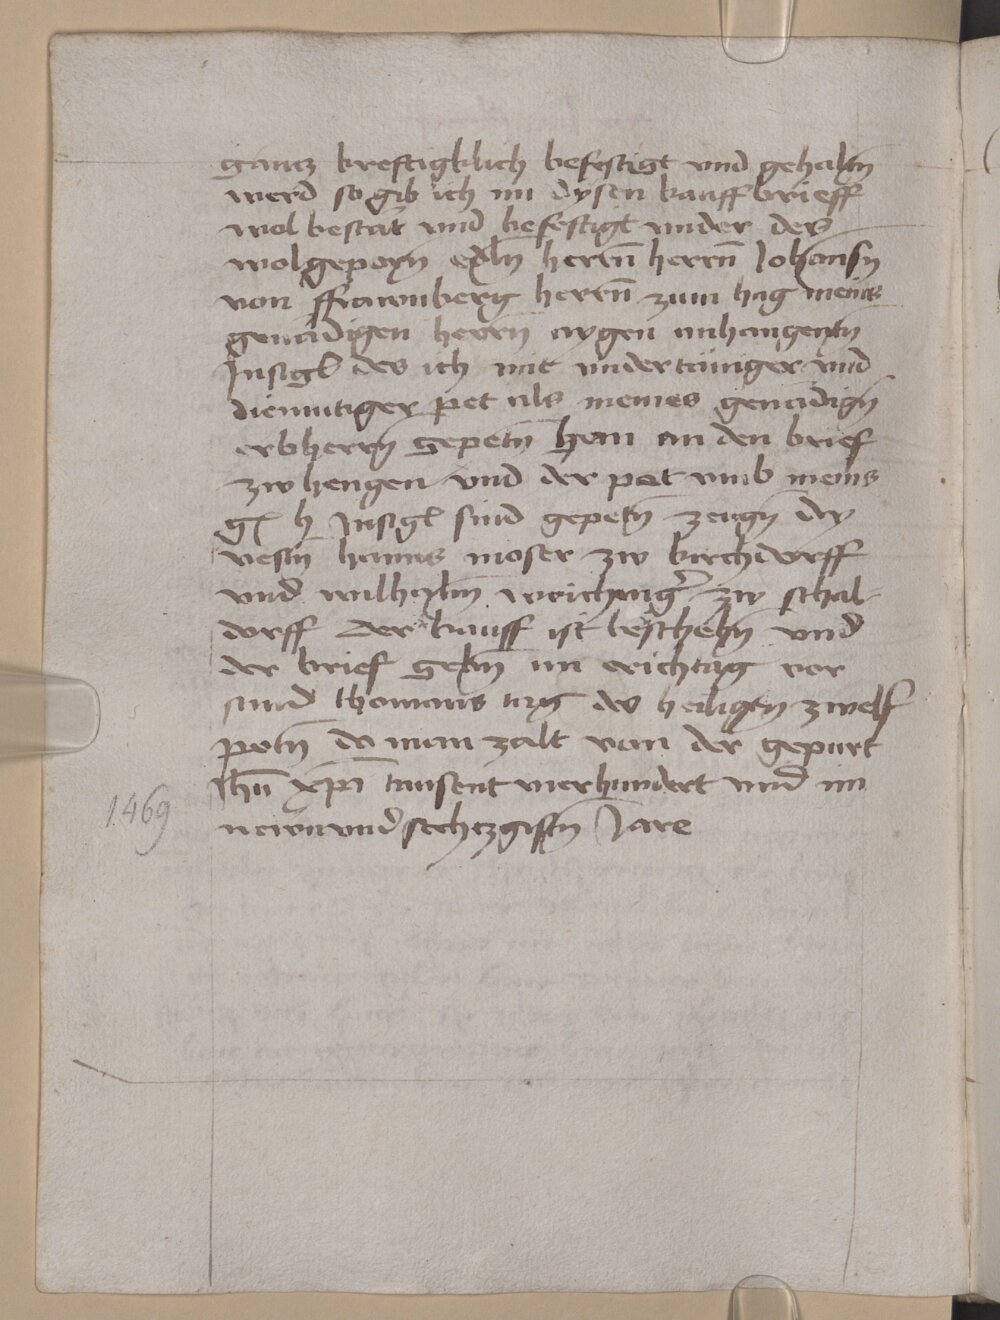 gantz kreftigklich befestigt und gehaltn
werd so gib ich im dysen kauffbrieff
wol bestat und befestigt under des
wolgeporn edln herrn herrn Johansn
von ffrawnberg herrn zum hag meins
genadigen herrn aygen anhangentn
Insigl des ich mit undertäniger und
diemutiger pet als meines genadign
erbherrn gepetn han an den brief
zw hengen und der pet umb meins
g h Insigl sind gepetn zeugn dy
vestn hanns moser zw kirchdorff
und wilhalm zw schal-
dorff der kauff ist beschehn und
der brief gebn im erichtag vor
sand thomans tag des heiligen zwelf
potn do man zalt von der gepurt
Jhu xpi tausent vierhundert und im
newnundsechtzgistn Jare
1469